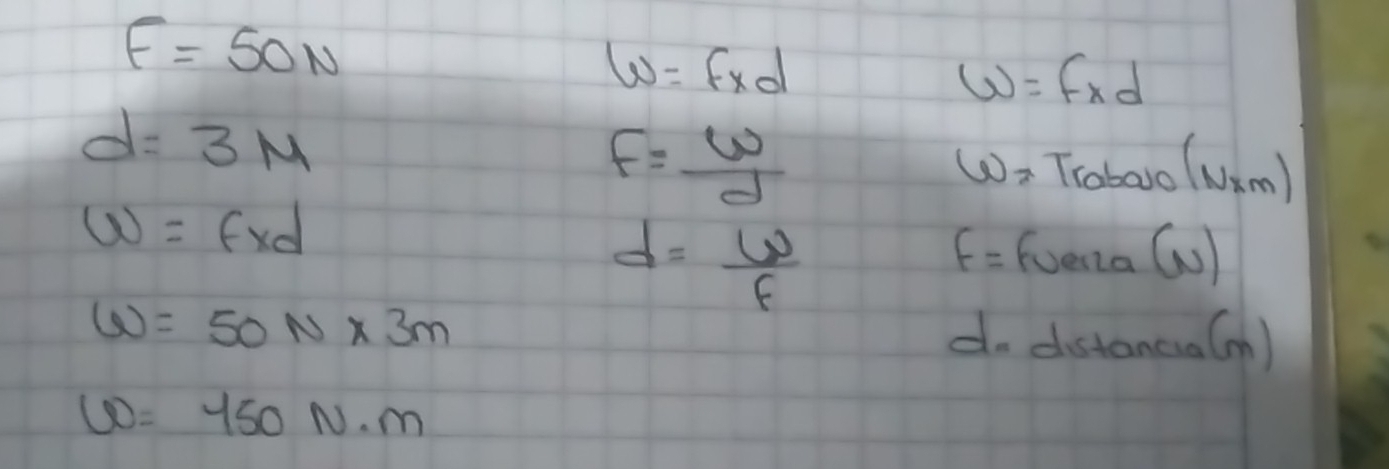 F = 50 N
d = 3 M
W = F x d
W = 50 N x 3m
W = 150 N.m
W = F x d
F = W/d
d = W/F
W = F x d
W = Trabajo (N x m)
F = Fuerza (N)
d = distancia (m)